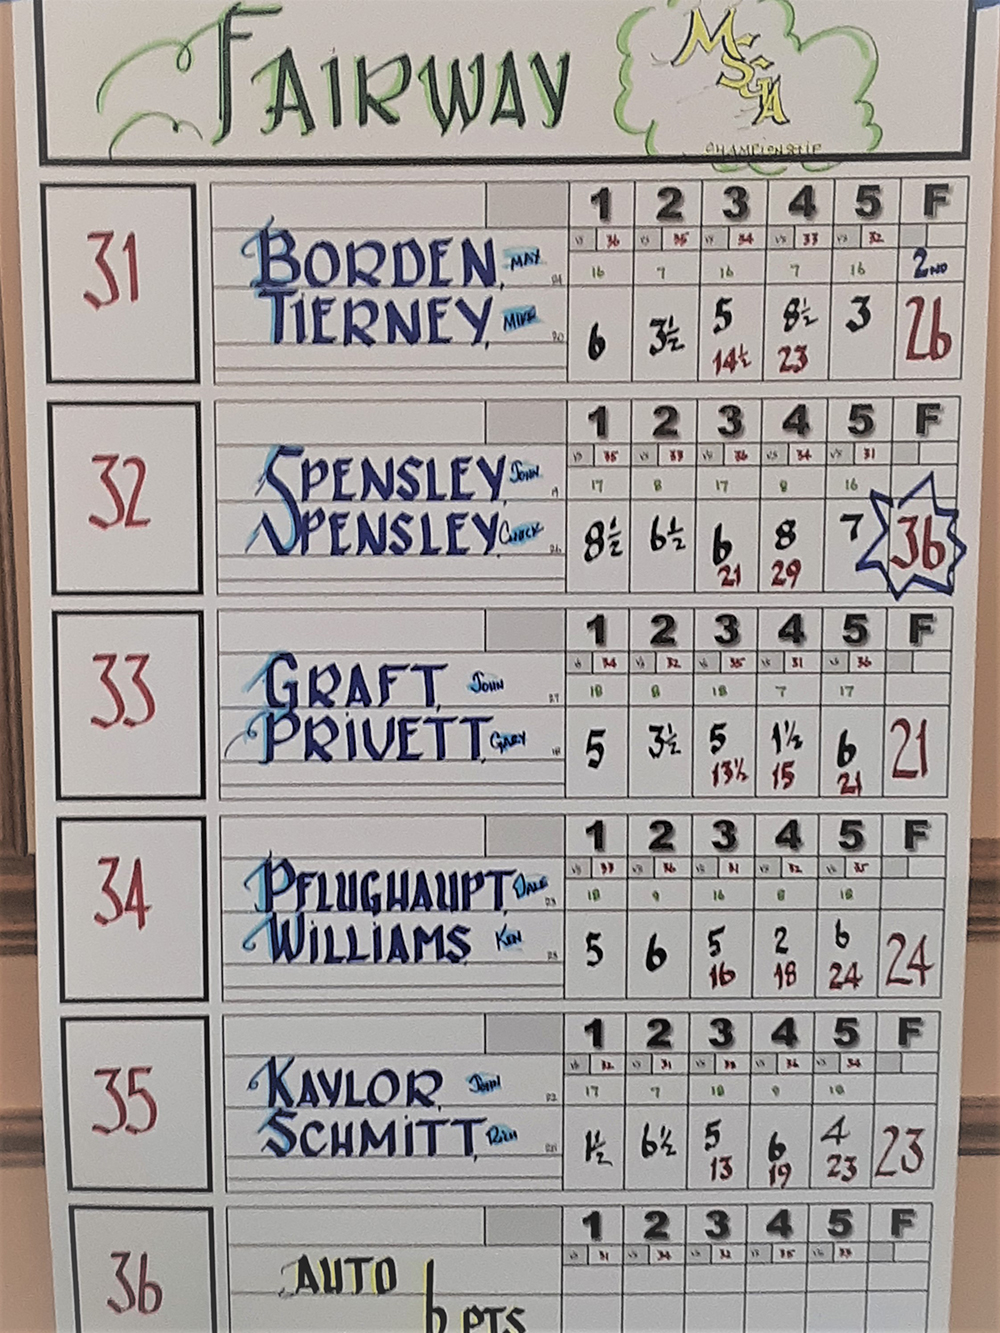 FAIRWAY
MSGA
CHAMPIONSHIP
31
1 2 3 4 5 F
vs 36 vs 35 vs 34 vs 33 vs 32
BORDEN, MAX
16 7 16 7 16 2ND
TIERNEY, MIKE
6 3½ 5 8½ 3 26
14½ 23
32
1 2 3 4 5 F
vs 35 vs 33 vs 36 vs 34 vs 31
SPENSLEY, JOHN
17 8 17 8 16
SPENSLEY, CHUCK
8½ 6½ 6 8 7 36
21 29
33
1 2 3 4 5 F
vs 34 vs 32 vs 35 vs 31 vs 36
GRAFT, JOHN
18 8 18 7 17
PRIVETT, GARY
5 3½ 5 1½ 6 21
13½ 15 21
34
1 2 3 4 5 F
vs 33 vs 36 vs 31 vs 32 vs 35
PFLUGHAUPT, DALE
18 9 16 8 18
WILLIAMS, KEN
5 6 5 2 6 24
16 18 24
35
1 2 3 4 5 F
vs 32 vs 31 vs 33 vs 36 vs 34
KAYLOR, JOHN
17 7 18 9 18
SCHMITT, RICH
1½ 6½ 5 6 4 23
13 19 23
36
1 2 3 4 5 F
vs 31 vs 34 vs 32 vs 35 vs 33
AUTO
6 PTS